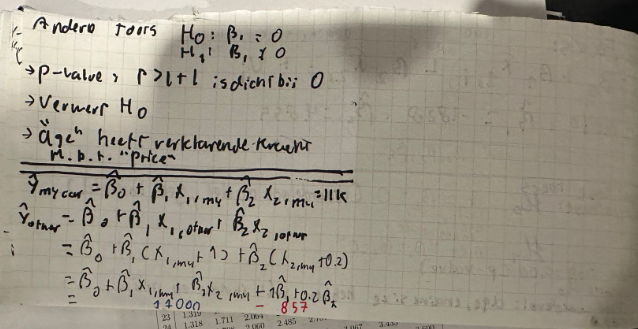 Andero toors H₀: β₁ = 0
H₁: β₁ ≠ 0
→ p-value, P>|t| is dicht bij 0
→ Verwerp H₀
→ "Age" heeft verklarende kracht
M.b.t. "Price"
Ŷmy car = β̂₀ + β̂₁ X₁,my + β̂₂ X₂,my = 11K
Ŷother = β̂₀ + β̂₁ X₁,other + β̂₂ X₂,other
= β̂₀ + β̂₁ (X₁,my + 1) + β̂₂ (X₂,my + 0.2)
= β̂₀ + β̂₁ X₁,my + β̂₂ X₂,my + 1β̂₁ + 0.2 β̂₂
= 11000 - 857
23 1.319
24 1.318 1.711 2.064
2.060 2.485